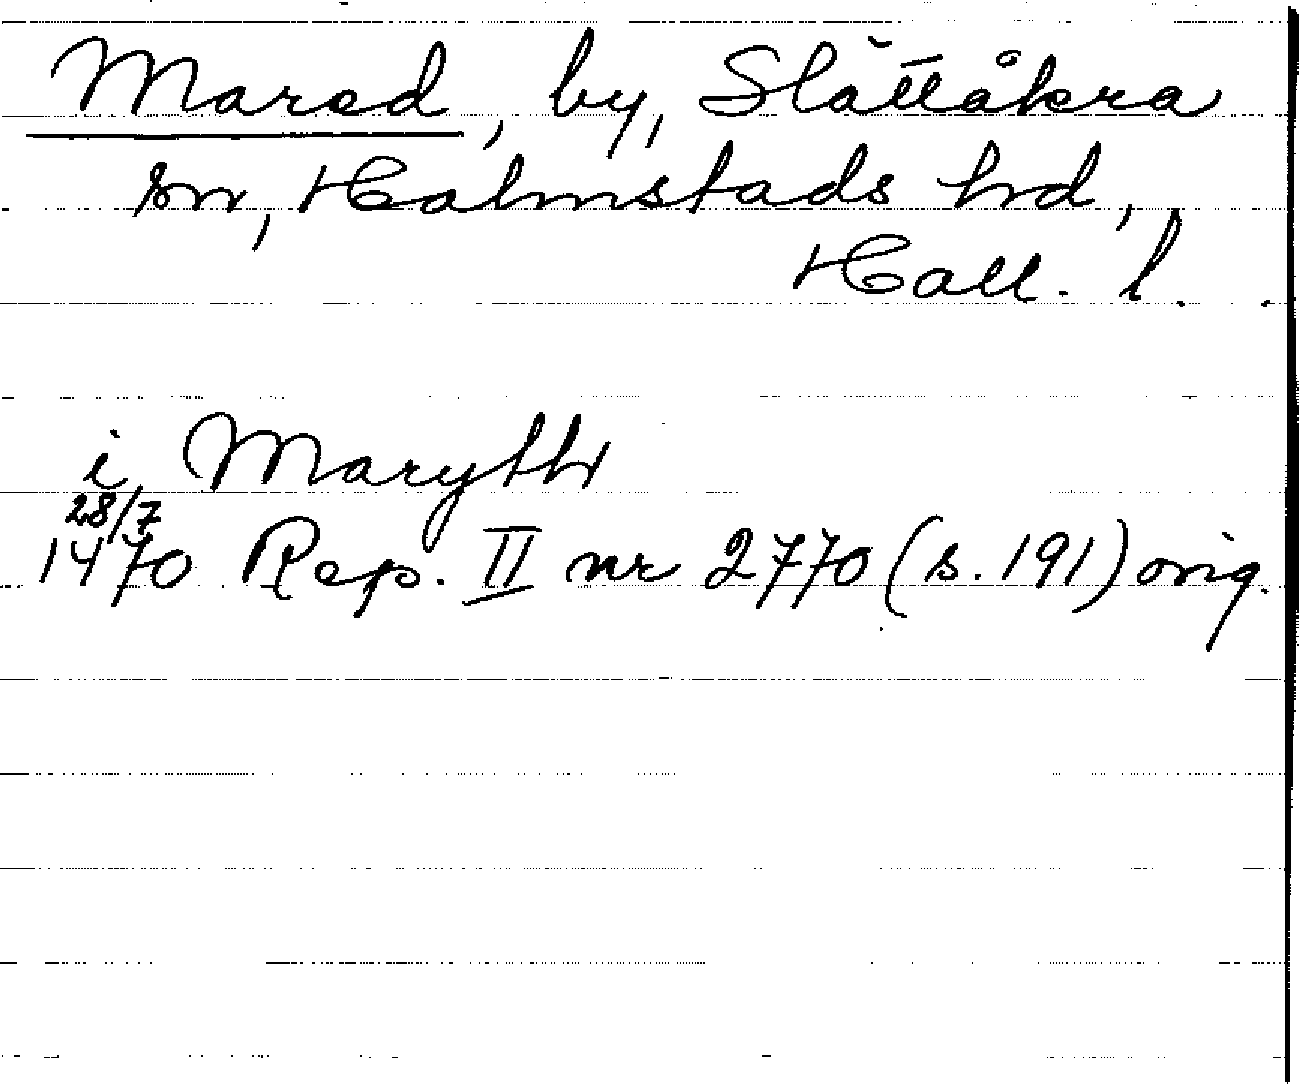 Mared, by, Slättåkra
sn, Halmstads hd,
Hall. l.
i Maryth
28/7
1470 Rep. II nr 2770 (s. 191) orig.